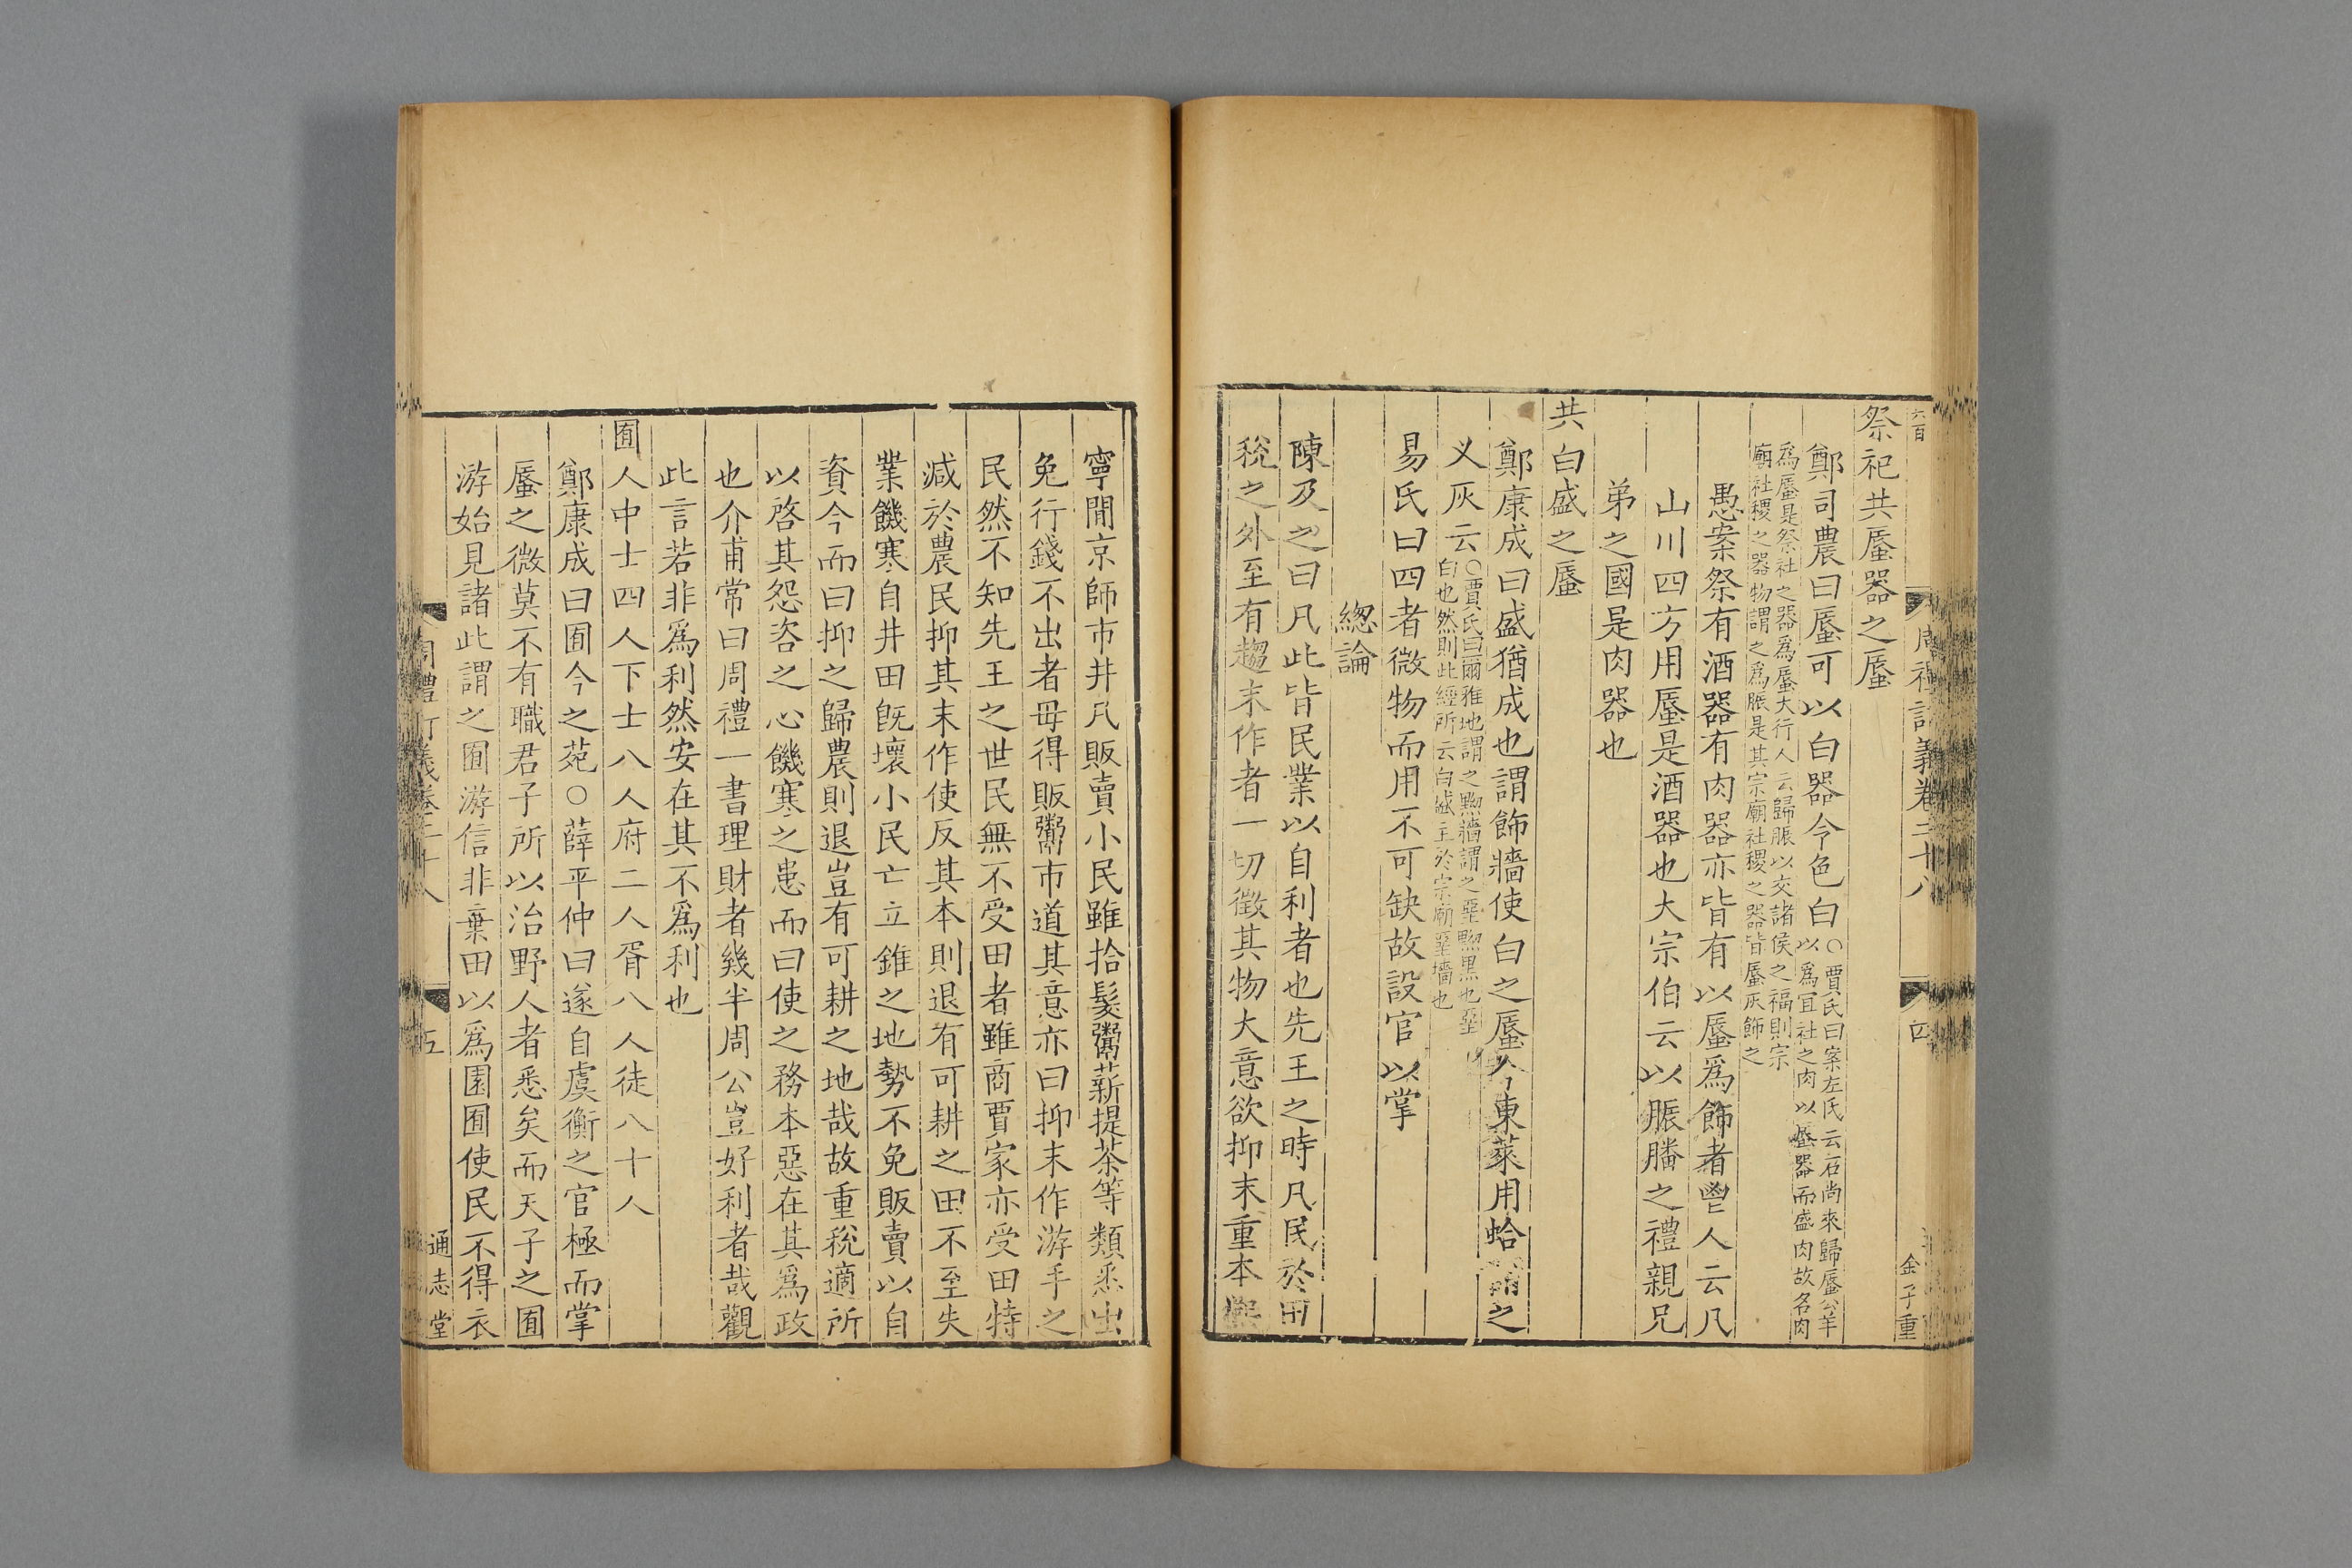 六百
周禮訂義卷二十八
四
金子重
祭祀共蜃器之蜃
鄭司農曰蜃可以白器令色白○賈氏曰案左氏云石尚來歸蜃公羊
以爲宜社之肉以蜃器而盛肉故名肉
爲蜃是祭社之器爲蜃大行人云歸脤以交諸侯之福則宗
廟社稷之器物謂之爲脤是其宗廟社稷之器皆蜃灰飾之
愚案祭有酒器有肉器亦皆有以蜃爲飾者鬯人云凡
山川四方用蜃是酒器也大宗伯云以脤膰之禮親兄
弟之國是肉器也
共白盛之蜃
鄭康成曰盛猶成也謂飾牆使白之蜃今東萊用蛤謂之
义灰云○賈氏曰爾雅地謂之黝牆謂之堊黝黑也堊
白也然則此經所云白盛主於宗廟堊墻也
易氏曰四者微物而用不可缺故設官以掌
總論
陳及之曰凡此皆民業以自利者也先王之時凡民於田
稅之外至有趨末作者一切徵其物大意欲抑末重本熈
寧間京師市井凡販賣小民雖拾髮鬻薪提茶等類悉出
免行錢不出者毋得販鬻市道其意亦曰抑末作游手之
民然不知先王之世民無不受田者雖商賈家亦受田特
減於農民抑其末作使反其本則退有可耕之田不至失
業饑寒自井田旣壞小民亡立錐之地勢不免販賣以自
資今而曰抑之歸農則退豈有可耕之地哉故重稅適所
以啓其怨咨之心饑寒之患而曰使之務本惡在其爲政
也介甫常曰周禮一書理財者幾半周公豈好利者哉觀
此言若非爲利然安在其不爲利也
囿人中士四人下士八人府二人胥八人徒八十人
鄭康成曰囿今之苑○薛平仲曰遂自虞衡之官極而掌
蜃之微莫不有職君子所以治野人者悉矣而天子之囿
游始見諸此謂之囿游信非棄田以爲園囿使民不得衣
周禮訂義卷二十八
五
通志堂